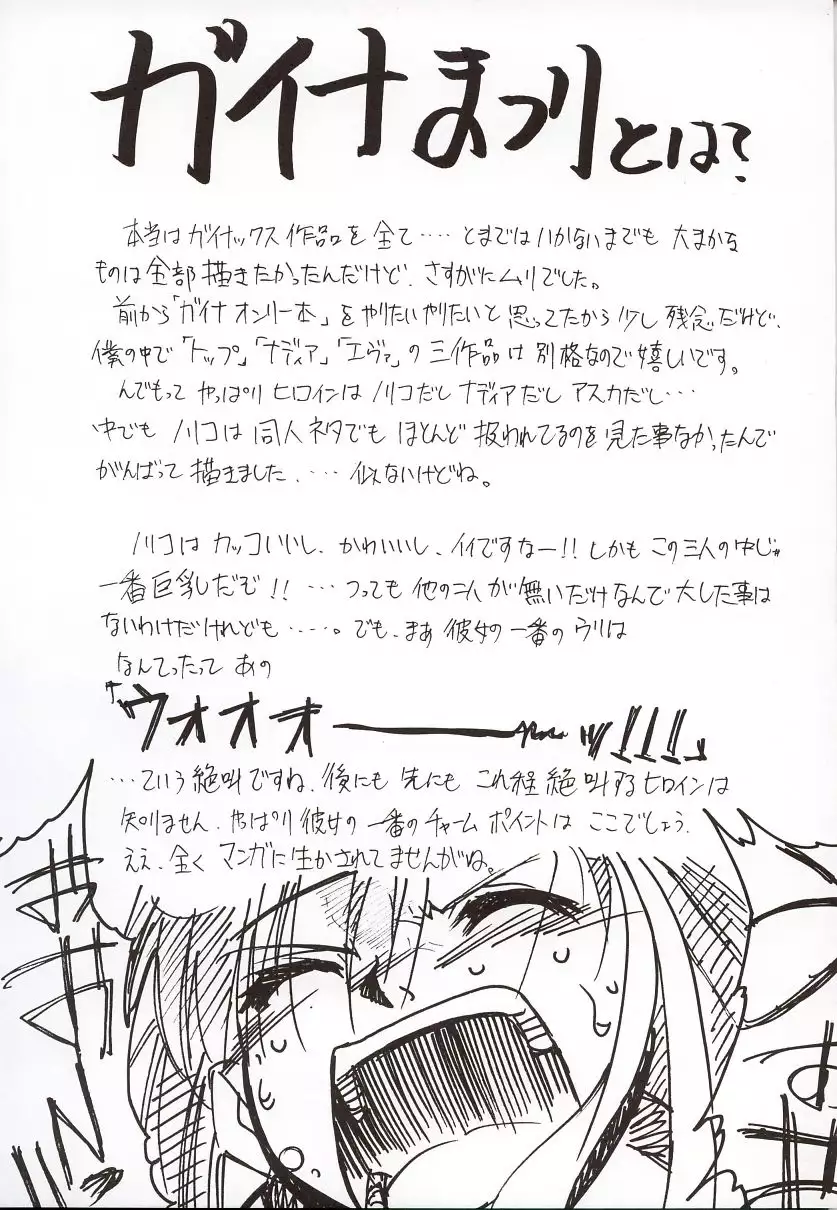 ガイナまつりとは?
本当はガイナックス作品を全て‥‥とまではいかないまでも大まかな
ものは全部描きたかったんだけど、さすがにムリでした。
前から「ガイナオンリー本」をやりたいやりたいと思ってたから少し残念だけど、
僕の中で「トップ」「ナディア」「エヴァ」の三作品は別格なので嬉しいです。
んでもってやっぱりヒロインはノリコだしナディアだしアスカだし‥‥
中でもノリコは同人ネタでもほとんど扱われてるのを見た事なかったんで
がんばって描きました‥‥似ないけどね。
ノリコはカッコいいし、かわいいし、イイですなー!!しかもこの三人の中じゃ
一番巨乳だぞ!!‥‥つっても他の二人が無いだけなんで大した事は
ないわけだけれども‥‥‥。でも、まぁ彼女の一番のウリは
なんてったってあの
「ウオオオーーーッ!!!」
‥‥ていう絶叫ですね、後にも先にもこれ程絶叫するヒロインは
知りません、やっぱり彼女の一番のチャームポイントはここでしょう、
ええ、全くマンガに生かされてませんがね。